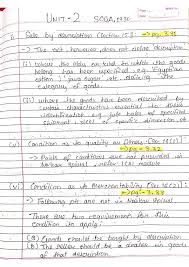 UNIT-2 SOGA, 1930
Sale by description (Section 15) → pg-3.35
→ The act however does not define description.
(i) where the class or kind to which the goods
belong has been specified, e.g. Egyptian
cotton, Java sugar etc., defining the
category of goods.
(ii) where the goods have been described by
certain characteristics
identification, e.g. jute bales of specified
shipment, steel of specific dimension etc.
(v) Condition as to quality or fitness [Sec 16(1)]
→ pg-3.37
→ Points of conditions are not presented in
Narkar spiral, refer ICAI module
(vi) Condition as to Merchantability [Sec 16(2)]
→ pg-3.38
→ Following pts are not in Narkar Spiral
→ There are two requirements for this
condition to apply:
(a) Goods should be bought by description.
(b) The seller should be a dealer in goods
of that description.